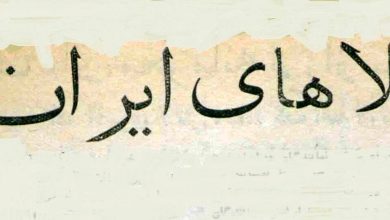 لاهای ایران